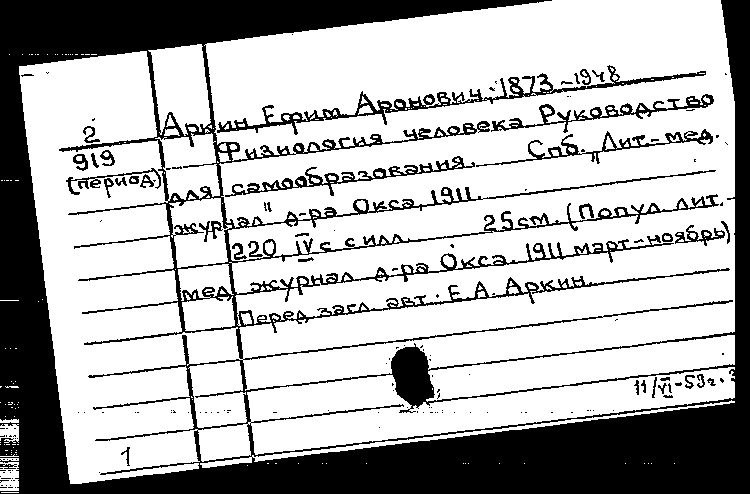 2
919
(период)
Аркин, Ефим Аронович, 1873-1948
Физиология человека Руководство
для самообразования. Спб. "Лит.-мед.
журнал" д-ра Окса, 1911.
220, IV с с илл. 25 см. (Попул. лит.-
мед. журнал д-ра Окса. 1911 март-ноябрь)
Перед загл. авт.: Е.А. Аркин.
11/VI-53г.
1